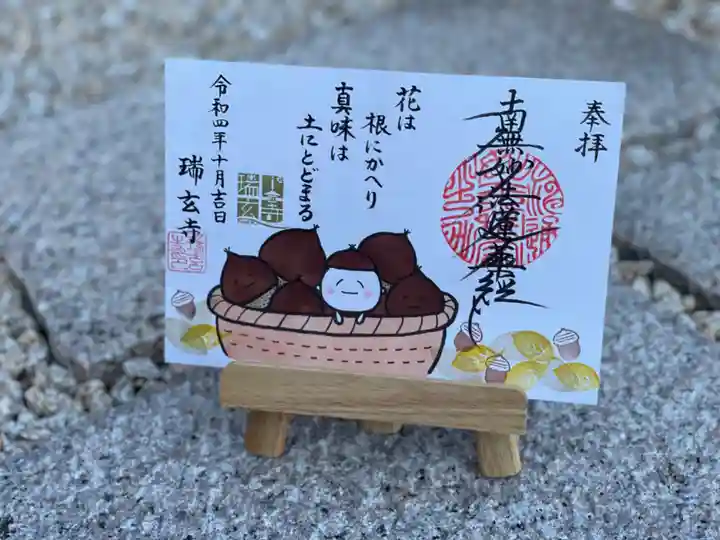 奉拝
南無妙法蓮華経
花は
根にかへり
真味は
土にとどまる
令和四年十月吉日
瑞玄寺